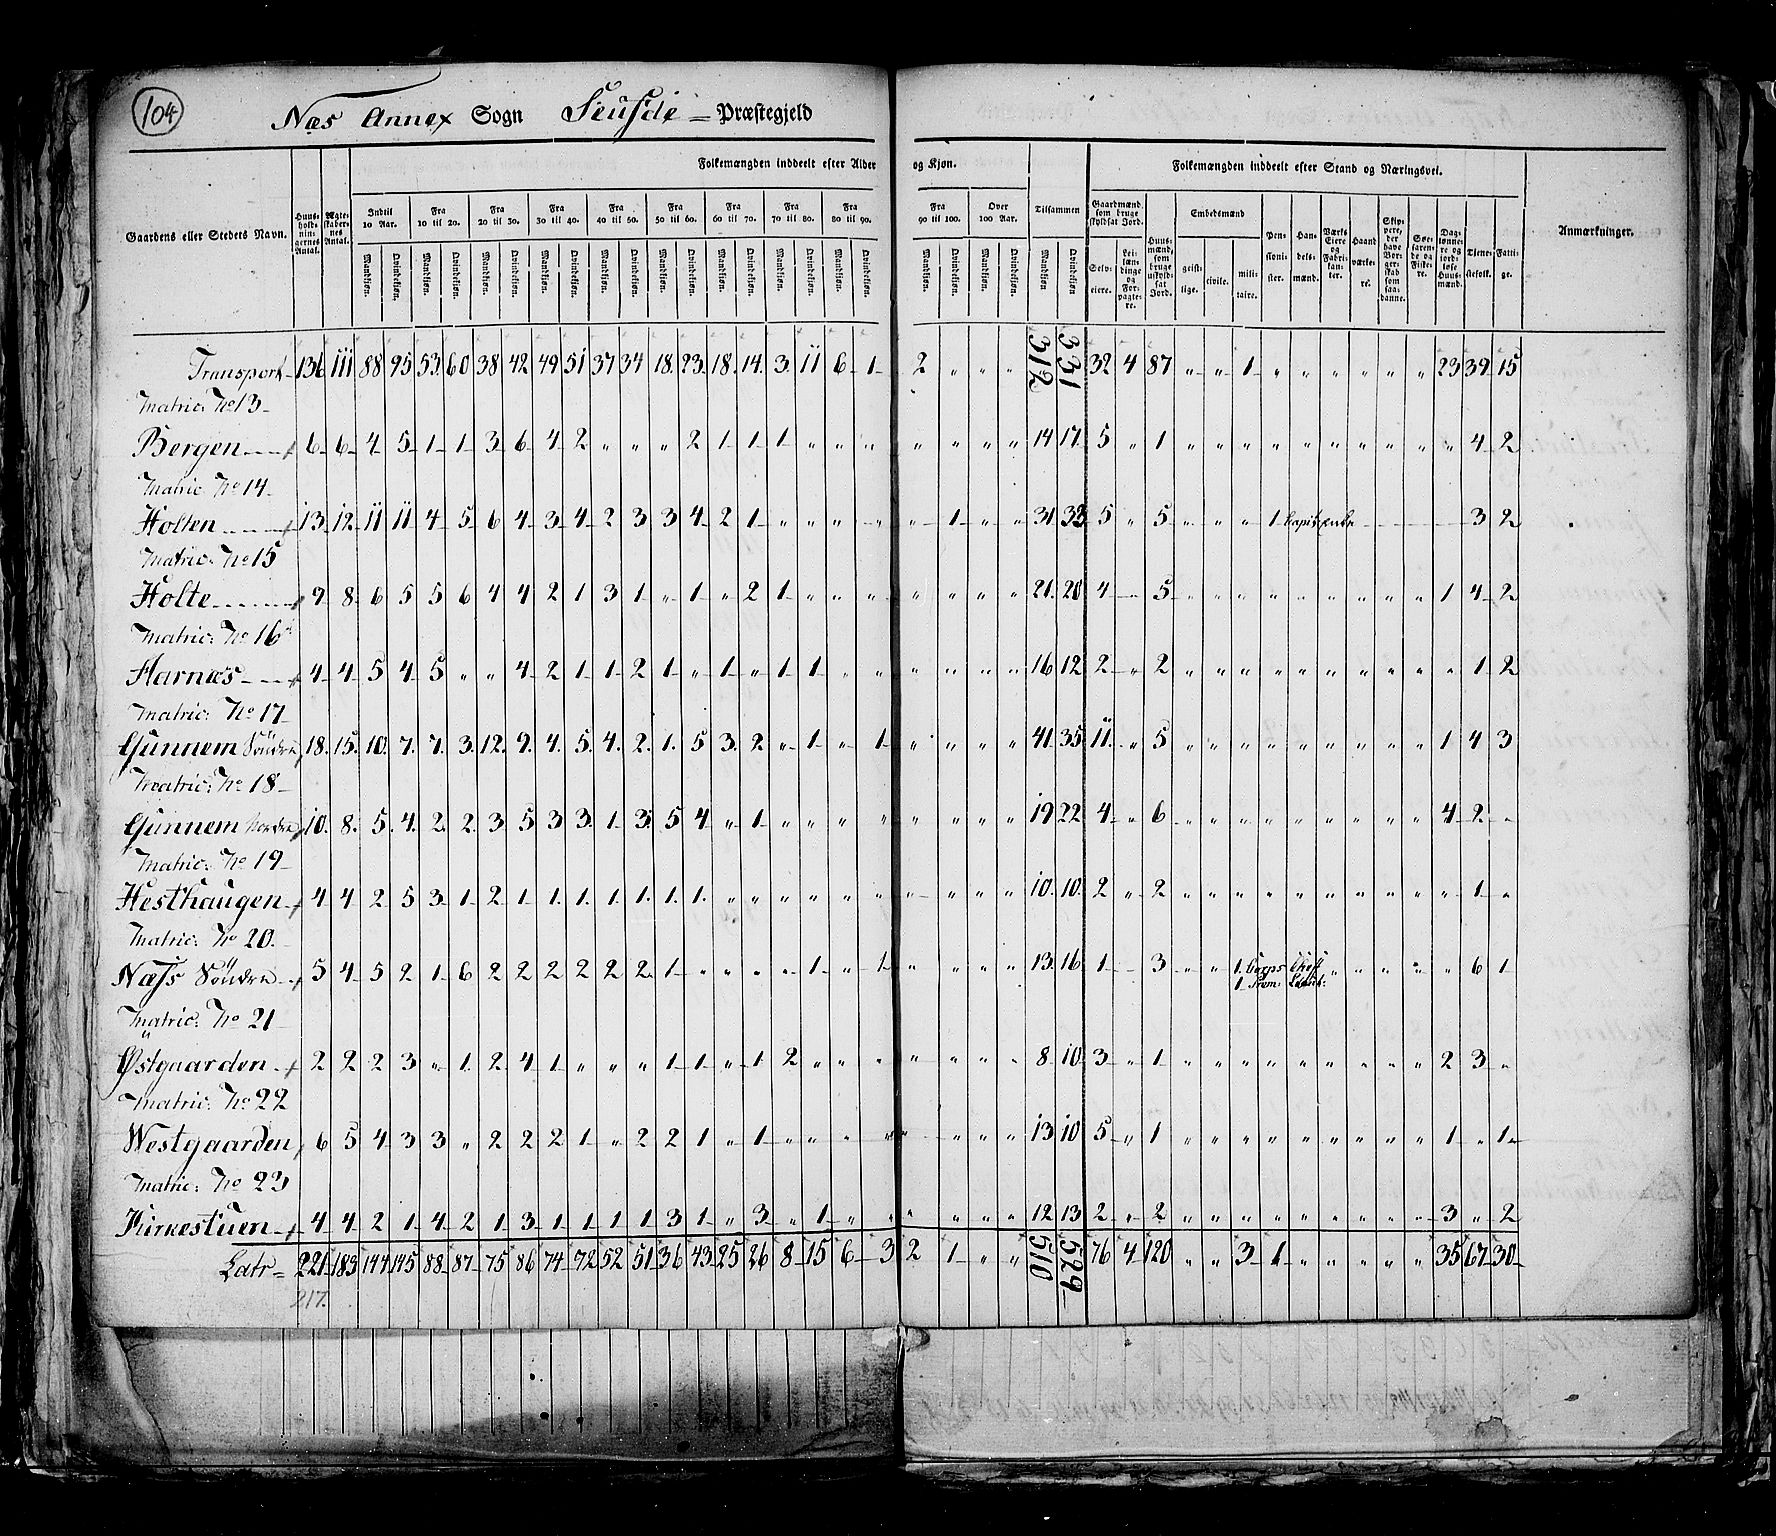 104
Næs Annex Sogn Seusde Præstegjeld
Gaardens eller Stedets Navn.
Huus-holdnin-gernes Antal.
Ægte-skaber-nes Antal.
Folkemængden inddeelt efter Alder og Kjøn.
Indtil 10 Aar. Fra 10 til 20. Fra 20 til 30. Fra 30 til 40. Fra 40 til 50. Fra 50 til 60. Fra 60 til 70. Fra 70 til 80. Fra 80 til 90. Fra 90 til 100. Over 100 Aar. Tilsammen
Mandkjøn. Qvindekjøn. Mandkjøn. Qvindekjøn. Mandkjøn. Qvindekjøn. Mandkjøn. Qvindekjøn. Mandkjøn. Qvindekjøn. Mandkjøn. Qvindekjøn. Mandkjøn. Qvindekjøn. Mandkjøn. Qvindekjøn. Mandkjøn. Qvindekjøn. Mandkjøn. Qvindekjøn. Mandkjøn. Qvindekjøn. Mandkjøn Qvindekjøn
Folkemængden inddeelt efter Stand og Næringsvei.
Gaardmænd, som bruge skyldsat Jord.
Selv-eiere.
Lei-læn-dinge og For-pagte-re.
Huus-mænd, som bruge uskyld-sat Jord.
Embedsmænd
geist-lige. civile. mili-taire.
Pen-sioni-ster.
Han-dels-mænd.
Værks-Eiere og Fabri-kanter.
Haand værke-re.
Skip-pere, der have Bor-ger-skab som saa-danne.
Søe-farende og Fiske-re.
Dag-lønne-re og jord-løse Huus-mænd.
Tjene-stefolk.
Fatti-ge.
Anmærkninger.
Transport 136 111 88 95 53 60 38 42 49 51 37 34 18 23 18 14 3 11 6 1 2 " " " 312 331 32 4 87 " " 1 " " " " " " 23 39 15
Matric: No 13
Bergen 6 6 4 5 1 1 3 6 4 2 " " " 2 1 1 1 " " " " " " " 14 17 5 " 1 " " " " " " " " " " 4 2
Matric No 14
Holten 13 12 11 11 4 5 6 4 3 4 2 3 3 4 2 1 " " " " " 1 " " 31 33 5 " 5 " " " 1 3 2
Matric: No 15
Holte 9 8 6 5 5 6 4 4 2 1 3 1 " 1 " 2 1 " " " " " " " 21 20 4 " 5 " " " " " " " " " 1 4 2
Matric: No 16
Harnæs 4 4 5 4 5 " " 4 2 1 1 2 1 " 1 " 1 1 " " " " " " 16 12 2 " 2 " " " " " " " " " " 1 2
Matric: No 17
Gunnem Söndre 18 15 10 7 7 3 12 9 4 5 4 2 1 5 3 2 " 1 " 1 " " " " 41 35 11 " 5 " " " " " " " " " 1 4 3
Matric: No 18
Gunnem Nordre 10 8 5 4 2 2 3 5 3 3 1 3 5 4 " 1 " " " " " " " " 19 22 4 " 6 " " " " " " " " " 4 2 "
Matric: No 19
Hesthaugen 4 4 2 5 3 1 2 1 1 1 1 1 1 1 " " " " " " " " " " 10 10 2 " 2 " " " " " " " " " " 1 "
Matric: No 20
Næss Söndre 5 4 5 2 1 6 2 2 2 2 2 2 1 " " " " 1 " 1 " " " " 13 16 1 3 " " 1 Corps Chef " " " " " 6 1
1 Prem: Lieut:
Matric: No 21
Østgaarden 2 2 2 3 " 1 2 4 1 " " " 1 1 " 1 2 " " " " " " " 8 10 3 " 1 " " " " " " " " " 2 3 "
Matric: No 22
Westgaarden 6 5 4 3 3 " 2 2 2 1 " 2 2 1 " 1 " " " " " " " " 13 10 5 " 1 " " " " " " " " " 1 " 1
Matric: No 23
Kirkestuen 4 4 2 1 4 2 1 3 1 1 1 1 3 1 " 3 " 1 " " " " " " 12 13 2 " 2 " " " " " " " " " 3 " 2
Latr 221 183 144 145 88 87 75 86 74 72 52 51 36 43 25 26 8 15 6 3 2 1 " " 510 529 76 4 120 " " 3 1 " " " " " 35 67 30
217.